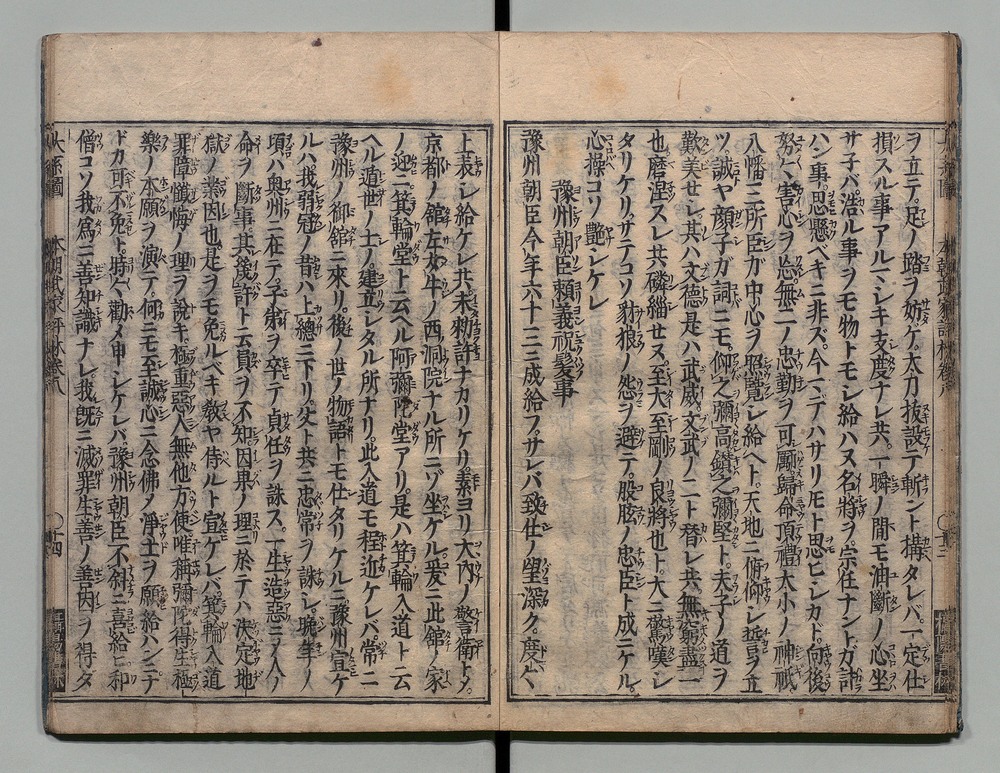 ヲ立テ。足ノ踏ヲ妨ケ。太刀抜設テ斬ント構タレバ。一定仕
損スル事アルマシキ支度ナレ共。一瞬ノ間モ油斷ノ心坐
サ子バ。浩ル事ヲモ物トモシ給ハヌ名將ヲ。宗任ナントガ計
ハン事。思懸ベキニ非ズ。今マデハサリトモト思ヒシカト。向後
努〻害心ヲ忘無二ノ忠勤ヲ可勵。歸命頂禮大小ノ神祇
八幡三所臣ガ中心ヲ照覽シ給ヘト。天地ニ俯仰シ誓ヲ立
ツ。誠ヤ顏子ガ詞ニモ。仰之彌高鑽之彌堅ト。夫子ノ道ヲ
歎美セシ。其ハ文德是ハ武威。文武ノ二ト替レ共無窮盡一
也。磨涅スレ共磷緇セヌ。至大至剛ノ良將也ト。大ニ驚嘆シ
タリケリ。サテコソ豺狼ノ怨ヲ避テ。股肱ノ忠臣ト成ニケル。
心操コソ艷シケレ
豫州朝臣賴義祝髮事
豫州朝臣今年六十三ニ成給フ。サレバ致仕ノ望深ク。度〻
上表シ給ケレ共未勅許ナカリケリ。素ヨリ大内ノ警衛トメ。
京都ノ舘左女牛ノ西洞院ナル所ニゾ坐ケル。爰ニ此舘ノ家
ノ迎ニ箕輪堂ト云ヘル阿彌陀堂アリ。是ハ箕輪入道ト云
ヘル遁世ノ士ノ建立シタル所ナリ。此入道モ程近ケレバ。常ニ
豫州ノ御舘ニ來リ。後ノ世ノ物語トモ仕タリケルニ。豫州宣ケ
ルハ我弱冠ノ昔ハ上總ニ下リ。父ト共ニ忠常ヲ誅シ。晩年ノ
頃ハ奥州ニ在テ。子弟ヲ卒テ貞任ヲ誅ス。一生造惡ニヲ人ノ
命ヲ斷事其幾許ト云員ヲ不知。因果ノ理ニ於テハ決定地
獄ノ業因也。是ヲモ免ルベキ敎ヤ侍ルト宣ケレバ。箕輪入道
罪障懺悔ノ理ヲ說キ。極重惡人無他方便唯稱彌陀得生極
樂ノ本願ヲ演テ。何ニモ至誠心ニ念佛ノ淨土ヲ願給ハンニナ
ドカ可不免ト。時〻勸メ申シケレバ。豫州朝臣不斜ニ喜給ヒ。和
僧コソ我爲ニ善知識ナレ。我旣ニ滅罪生善ノ善因ヲ得タ
本朝武家評林卷八
〇十四